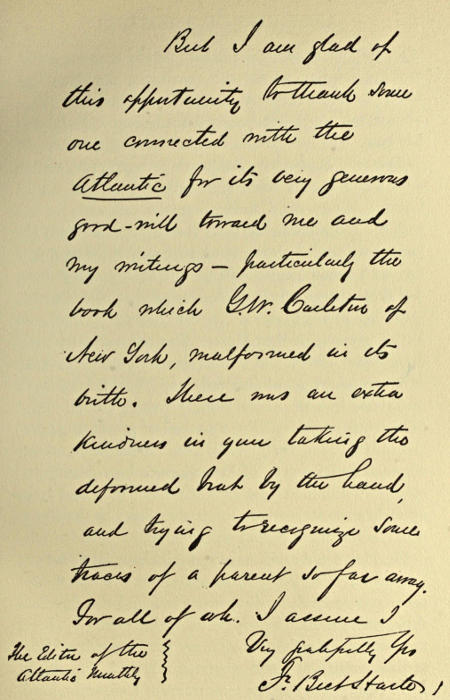 But I am glad of
this opportunity to thank some
one connected with the
Atlantic for its very generous
good-will toward me and
my writings — particularly the
book which G.W. Carleton of
New York, malformed in its
birth. There was an extra
kindness in your taking the
deformed brat by the hand,
and trying to recognize some
traces of a parent so far away.
For all of wh. I assure I
Very gratefully Yrs
Fr. Bret Harte,
The Editor of the
Atlantic Monthly